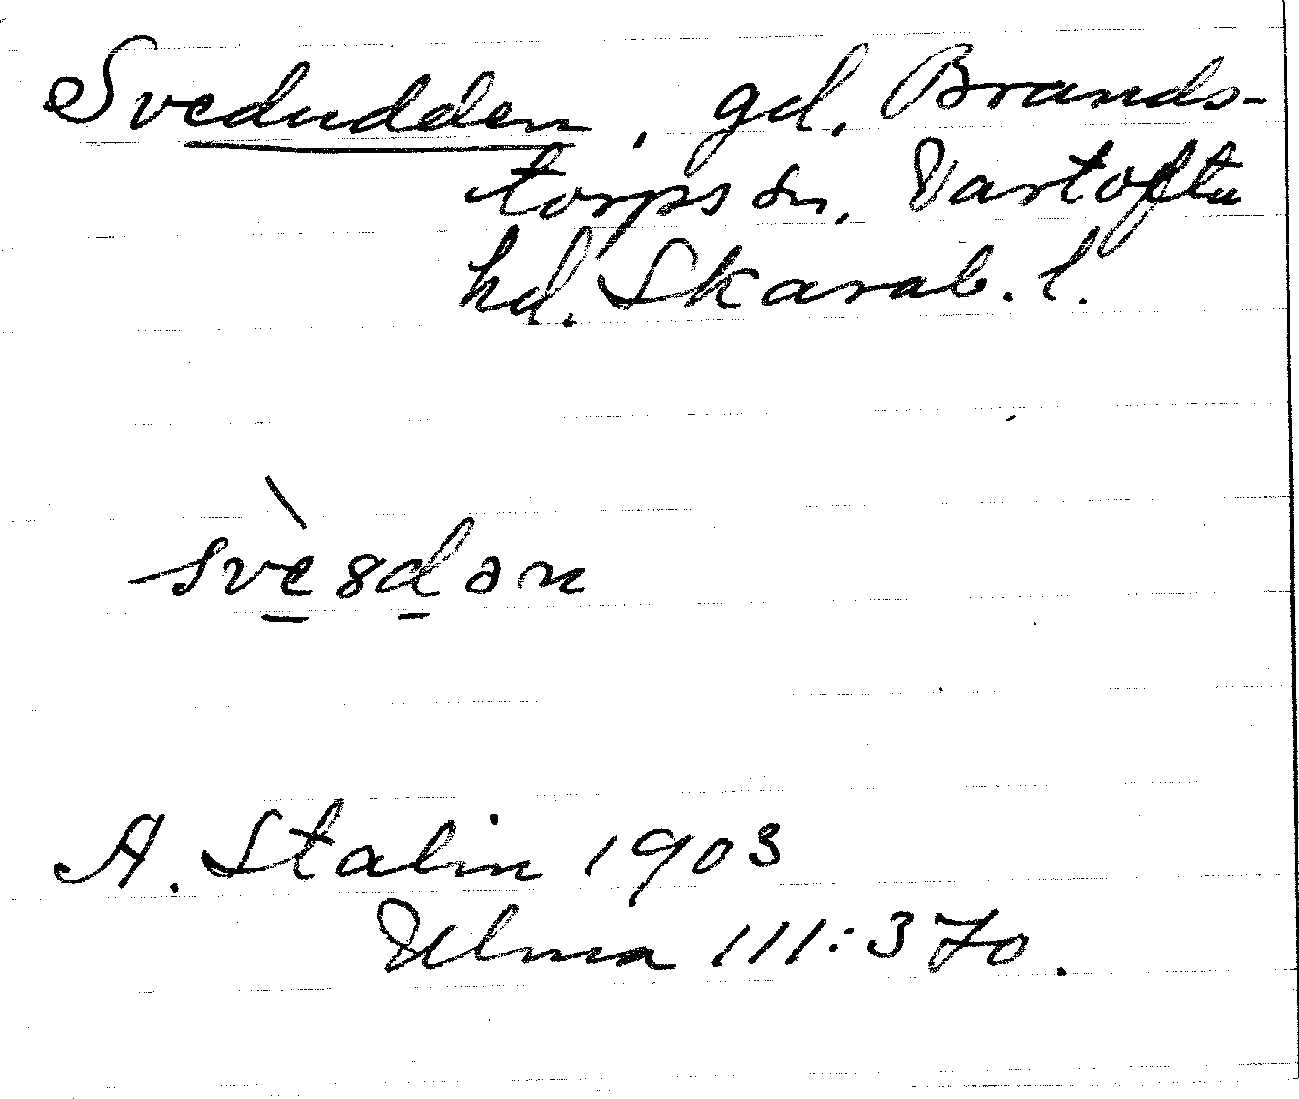 Svedudden, gd, Brands-
torps sn, Vartofta
hd. Skarab. l.
svèsdən
A. Stalin 1903
Ulma 111:370.